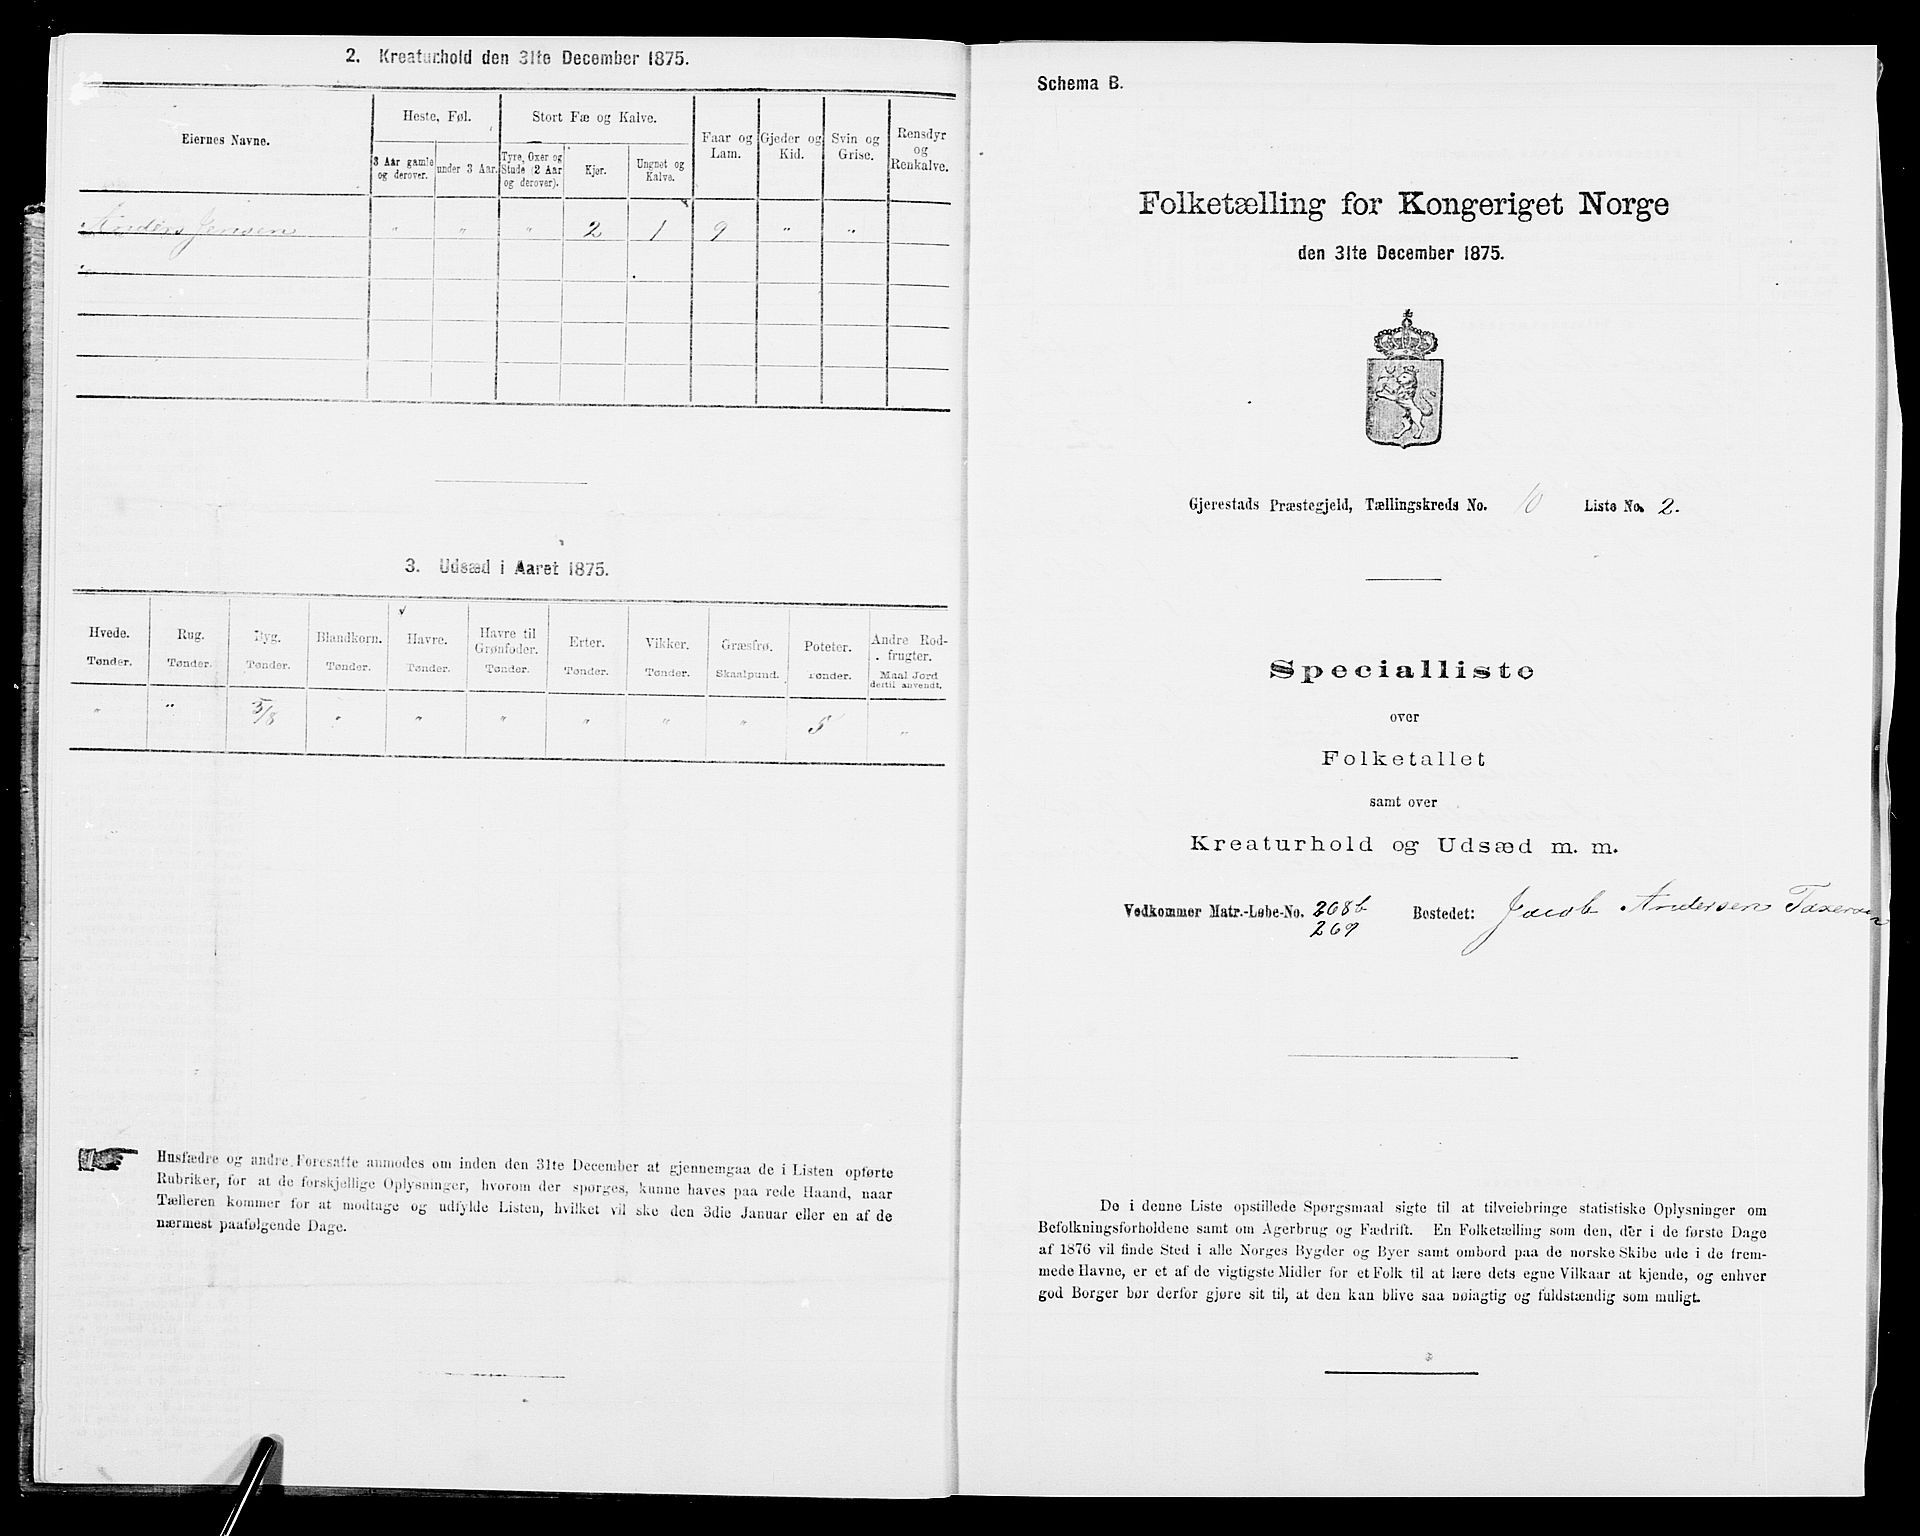 2. Kreaturhold den 31te December 1875.
Eiernes Navne.
Heste, Føl.
Stort Fæ og Kalve.
Faar og Lam.
Gjeder og Kid.
Svin og Grise.
Rensdyr og Renkalve.
3 Aar gamle og derover.
under 3 Aar.
Tyre, Oxer og Stude (2 Aar og derover).
Kjør.
Ungnet og Kalve.
Anders Jensen " " " 2 1 9 " "
3. Udsæd i Aaret 1875.
Hvede. Rug. Byg. Blandkorn. Havre. Havre til Grønfoder. Erter. Vikker. Græsfrø. Poteter. Andre Rodfrugter.
Tønder. Tønder. Tønder. Tønder. Tønder. Tønder. Tønder. Tønder. Skaalpund. Tønder. Maal Jord dertil anvendt.
" " 5/8 " " " " " " 5 "
Husfædre og andre Foresatte anmodes om inden den 31te December at gjennemgaa de i Listen opførte
Rubriker, for at de forskjellige Oplysninger, hvorom der spørges, kunne haves paa rede Haand, naar
Tælleren kommer for at modtage og udfylde Listen, hvilket vil ske den 3die Januar eller en af de
nærmest paafølgende Dage.
Schema B.
Folketælling for Kongeriget Norge
den 31te December 1875.
Gjerestads Præstegjeld, Tællingskreds No. 10 Liste No. 2.
Specialliste
over
Folketallet
samt over
Kreaturhold og Udsæd m. m.
Vedkommer Matr.-Løbe-No. 268b Bostedet: Jacob Andersen
269
De i denne Liste opstillede Spørgsmaal sigte til at tilveiebringe statistiske Oplysninger om
Befolkningsforholdene samt om Agerbrug og Fædrift. En Folketælling som den, der i de første Dage
af 1876 vil finde Sted i alle Norges Bygder og Byer samt ombord paa de norske Skibe ude i de frem-
mede Havne, er et af de vigtigste Midler for et Folk til at lære dets egne Vilkaar at kjende, og enhver
god Borger bør derfor gjøre sit til, at den kan blive saa nøiagtig og fuldstændig som muligt.